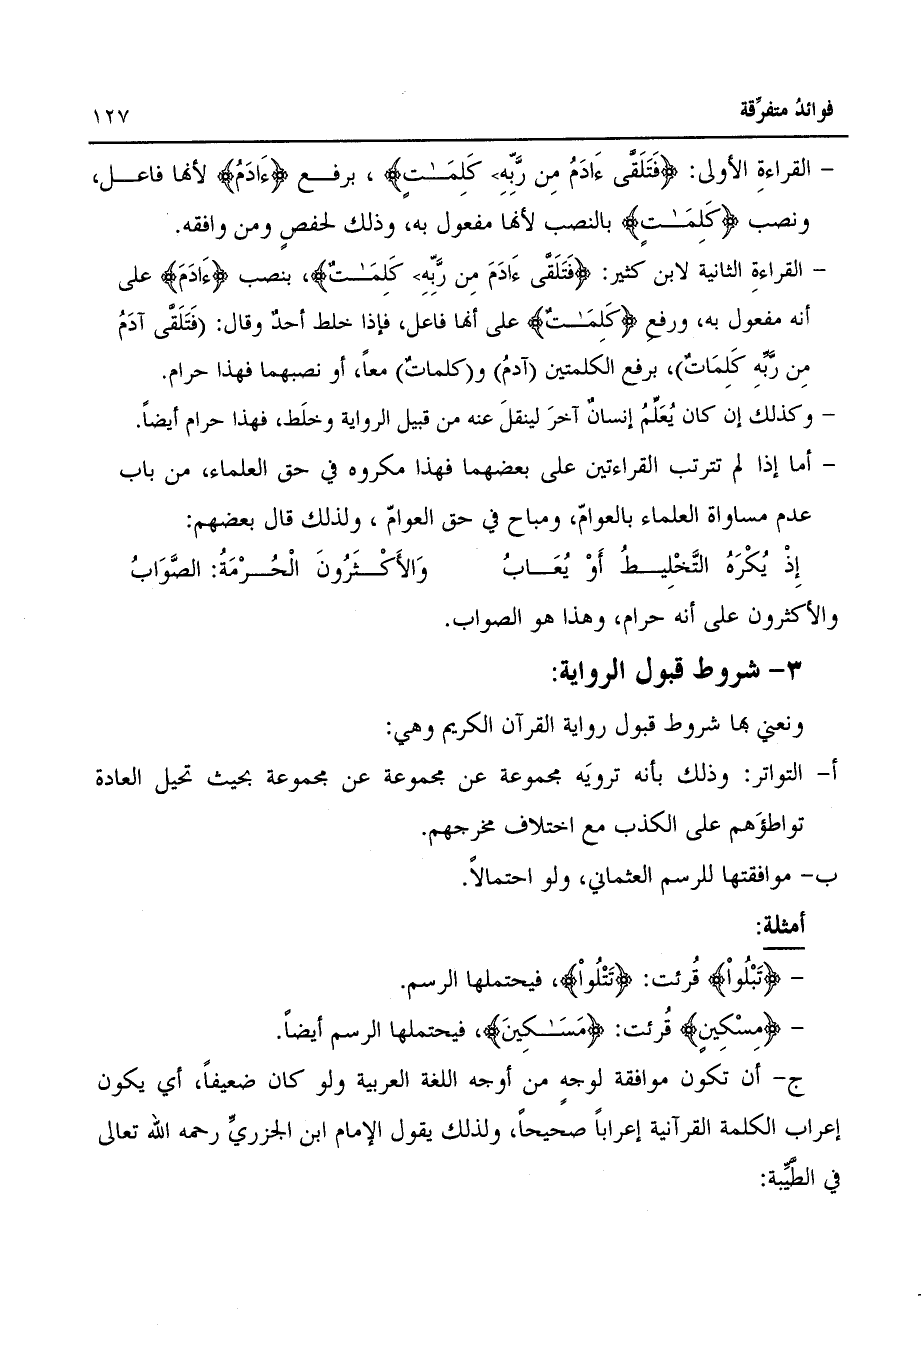 فوائدُ متفرِّقة
١٢٧
– القراءة الأولى: ﴿فَتَلَقَّى ءَادَمُ مِن رَّبِّهِۦ كَلِمَـٰتٍ﴾ ، برفـــع ﴿ءَادَمُ﴾ لأنها فاعـــل،
ونصب ﴿كَلِمَـٰتٍ﴾ بالنصب لأنها مفعول به، وذلك لحفصٍ ومن وافقه.
– القراءة الثانية لابن كثير: ﴿فَتَلَقَّى ءَادَمَ مِن رَّبِّهِۦ كَلِمَـٰتٌ﴾، بنصب ﴿ءَادَمَ﴾ على
أنه مفعول به، ورفعِ ﴿كَلِمَـٰتٌ﴾ على أنها فاعل، فإذا خلط أحدٌ وقال: (فَتَلَقَّى آدَمُ
مِن رَّبِّهِ كَلِمَاتٌ)، برفع الكلمتين (آدمُ) و(كلماتٌ) معاً، أو نصبهما فهذا حرام.
– وكذلك إن كان يُعَلِّمُ إنسانٌ آخرَ لينقلَ عنه من قبيل الرواية وخلَط، فهذا حرام أيضاً.
– أما إذا لم تترتب القراءتين على بعضهما فهذا مكروه في حق العلماء، من باب
عدم مساواة العلماء بالعوامّ، ومباح في حق العوامّ ، ولذلك قال بعضهم:
إِذْ يُكْرَهُ التَّخْلِيـــطُ أَوْ يُعَـــابُ وَالأَكْـــثَرُونَ الْحُـــرْمَةُ: الصَّوَابُ
والأكثرون على أنه حرام، وهذا هو الصواب.
٣– شروط قبول الرواية:
ونعني بها شروط قبول رواية القرآن الكريم وهي:
أ– التواتر: وذلك بأنه ترويَه مجموعة عن مجموعة عن مجموعة بحيث تحيل العادة
تواطؤَهم على الكذب مع اختلاف مخرجهم.
ب– موافقتها للرسم العثماني، ولو احتمالاً.
أمثلة:
– ﴿تَبْلُواْ﴾ قُرئت: ﴿تَتْلُواْ﴾، فيحتملها الرسم.
– ﴿مِسْكِينٍ﴾ قُرئت: ﴿مَسَـٰكِينَ﴾، فيحتملها الرسم أيضاً.
ج– أن تكون موافقة لوجهٍ من أوجه اللغة العربية ولو كان ضعيفاً، أي يكون
إعراب الكلمة القرآنية إعراباً صحيحاً، ولذلك يقول الإمام ابن الجزريِّ رحمه الله تعالى
في الطَّيِّبة: